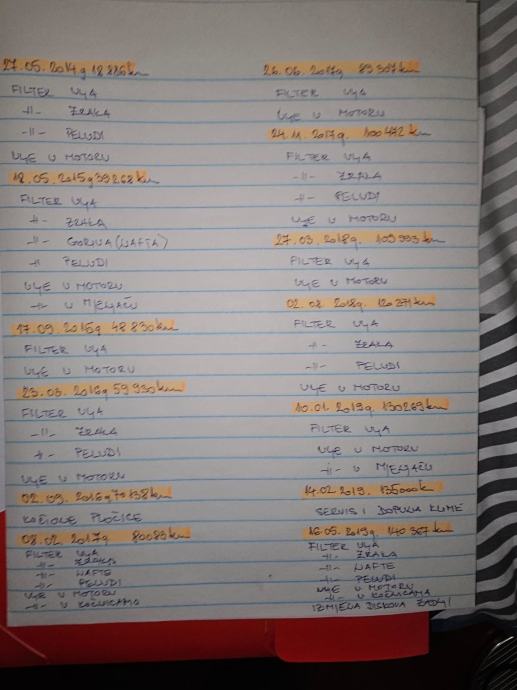 27.05.2014g 18 886km
FILTER ULJA
-||- ZRAKA
-||- PELUDI
ULJE U MOTORU
18.05.2015g 39268 km
FILTER ULJA
-||- ZRAKA
-||- GORIVA (NAFTA)
-||- PELUDI
ULJE U MOTORU
-||- U MJENJAČU
17.09.2015g 48 830km
FILTER ULJA
ULJE U MOTORU
23.03.2016g 59 930km
FILTER ULJA
-||- ZRAKA
-||- PELUDI
ULJE U MOTORU
02.09.2016g 70 838km
KOČIONE PLOČICE
08.02.2017g 80089km
FILTER ULJA
-||- ZRAKA
-||- NAFTE
-||- PELUDI
ULJE U MOTORU
-||- U KOČNICAMA
26.06.2017g 89 307km
FILTER ULJA
ULJE U MOTORU
24.11.2017g. 100 472 km
FILTER ULJA
-||- ZRAKA
-||- PELUDI
ULJE U MOTORU
27.03.2018g. 109 993km
FILTER ULJA
ULJE U MOTORU
02.08.2018g. 120 271km
FILTER ULJA
-||- ZRAKA
-||- PELUDI
ULJE U MOTORU
10.01.2019g. 130269km
FILTER ULJA
ULJE U MOTORU
-||- U MJENJAČU
14.02.2019. 135000km
SERVIS I DOPUNA KLIME
16.05.2019g. 140 367km
FILTER ULJA
-||- ZRAKA
-||- NAFTE
-||- PELUDI
ULJE U MOTORU
-||- U KOČNICAMA
IZMJENA DISKOVA ZADNJI